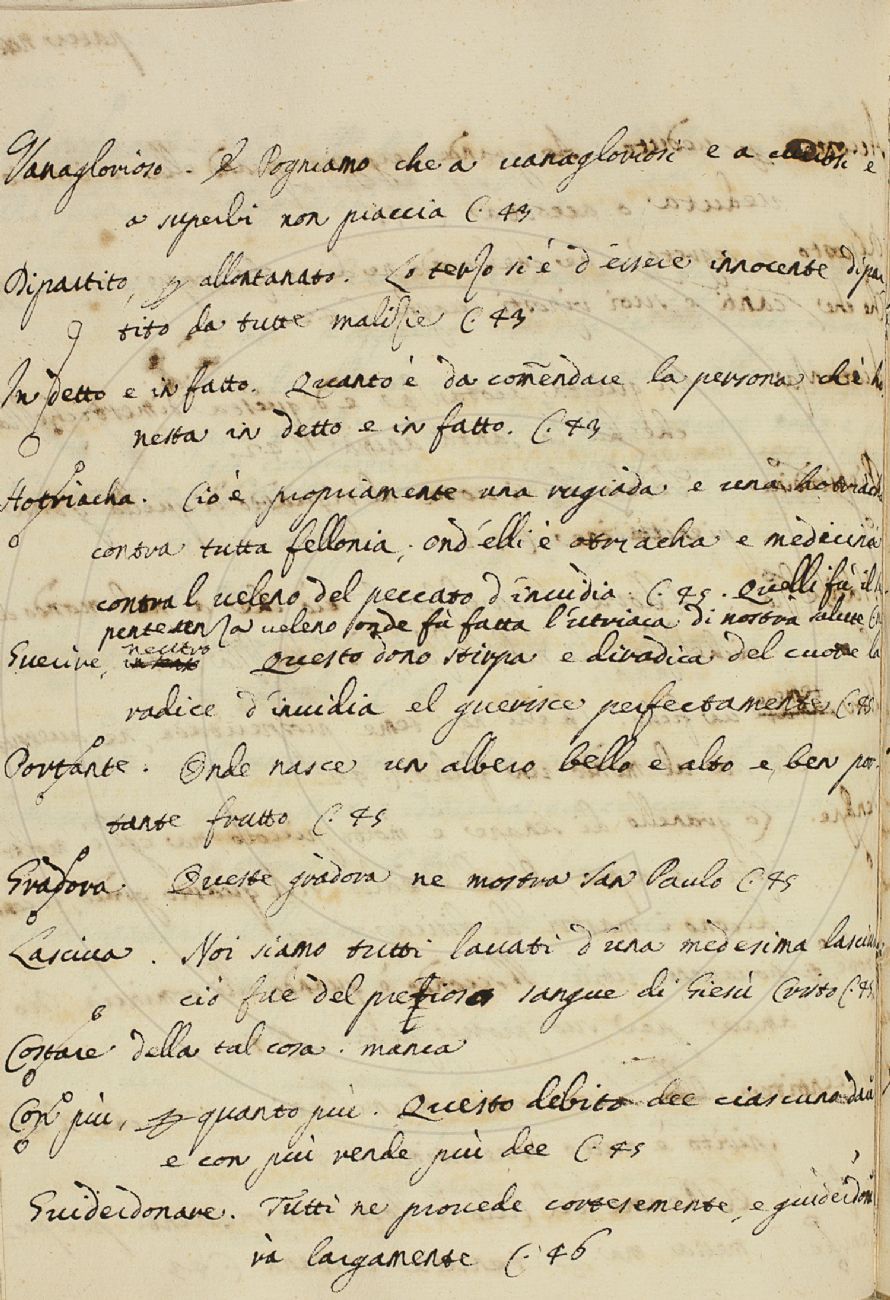 Vanaglorioso. Pogniamo che a vanagloriosi e a e
a superbi non piaccia C. 43
Dipartito, p allontanato. Lo terzo si è d'essere innocente dipar
tito da tutte malizie C. 43
In detto e in fatto. Quanto è da comendare la persona ch'è ho
nesta in detto e in fatto. C. 43
Hotriacha. Ciò è propriamente una rugiada e una hotriach
contra tutta fellonia, ond'elli è otriacha e medicina
contra l veleno del peccato d'invidia. C. 45. Quelli fu il
veleno onde fu fatta l'utriaca di nostra salute
Guerire, neutro Questo dono stirpa e diradica del cuore la
radice d'invidia el guerisce perfectamente C. 45
Portante. Onde nasce un albero bello e alto e ben por-
tante frutto C. 45
Gradora Queste gradora ne mostra San Paulo C. 45
Lasciva. Noi siamo tutti lavati d'una medesima lasciva
ciò fue del prezioso sangue di Giesù Cristo C. 45
Costare della tal cosa. manca
Con più, p quanto più. Questo debito dee ciascuno
e con più rende più dee C. 45
Guiderdonare. Tutti ne provede cortesemente, e guiderdone
rà largamente C. 46